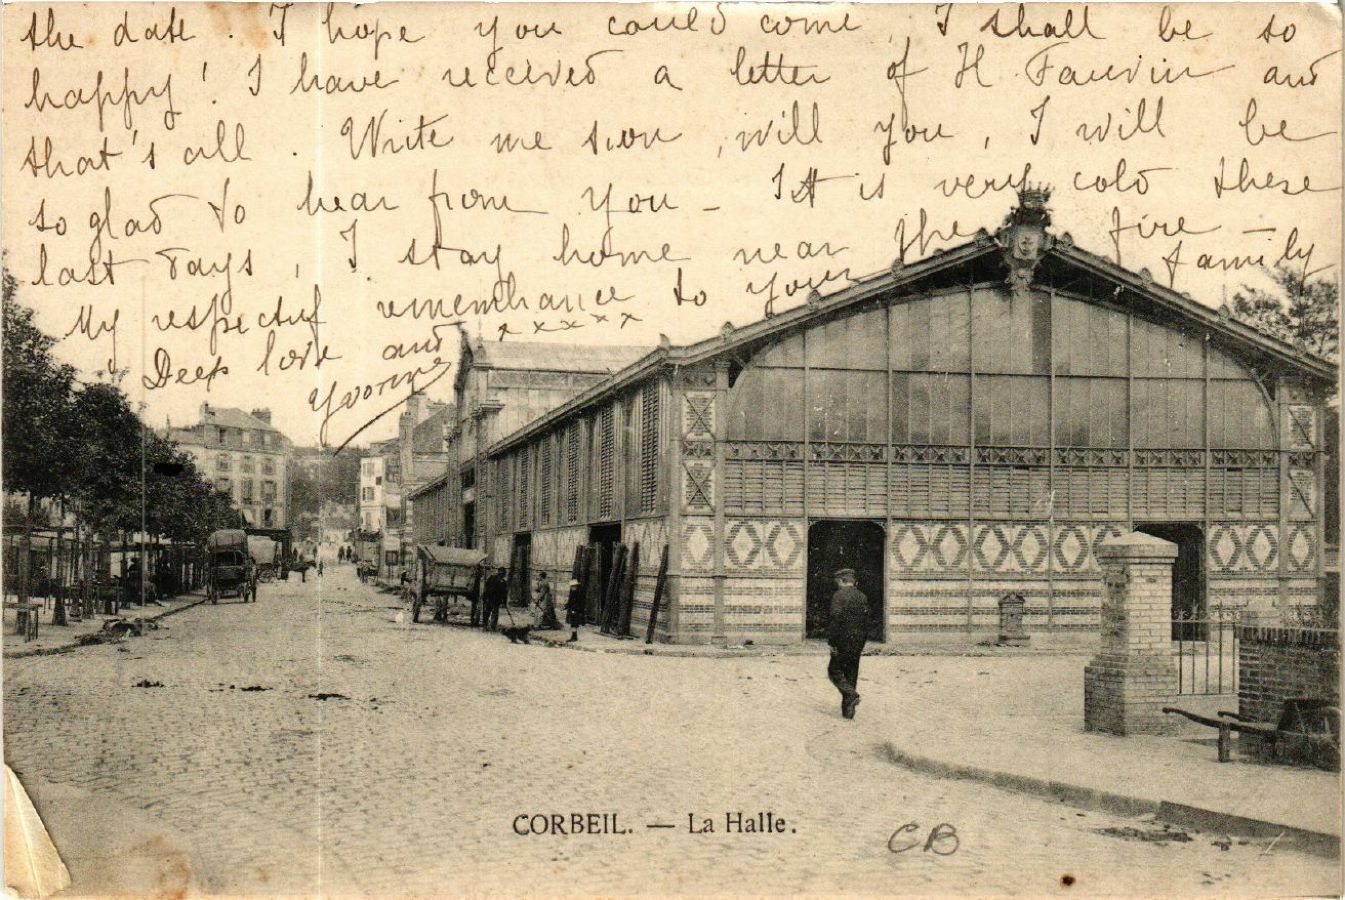 the date. I hope you could come, I shall be so
happy! I have received a letter of H. Fauvin and
that's all. Write me soon, will you, I will be
so glad to hear from you - It is very cold these
last days, I stay home near the fire -
My respectuf remembrance to your family
Deep love and xxxxx
Yvonne
CORBEIL. — La Halle.
CB